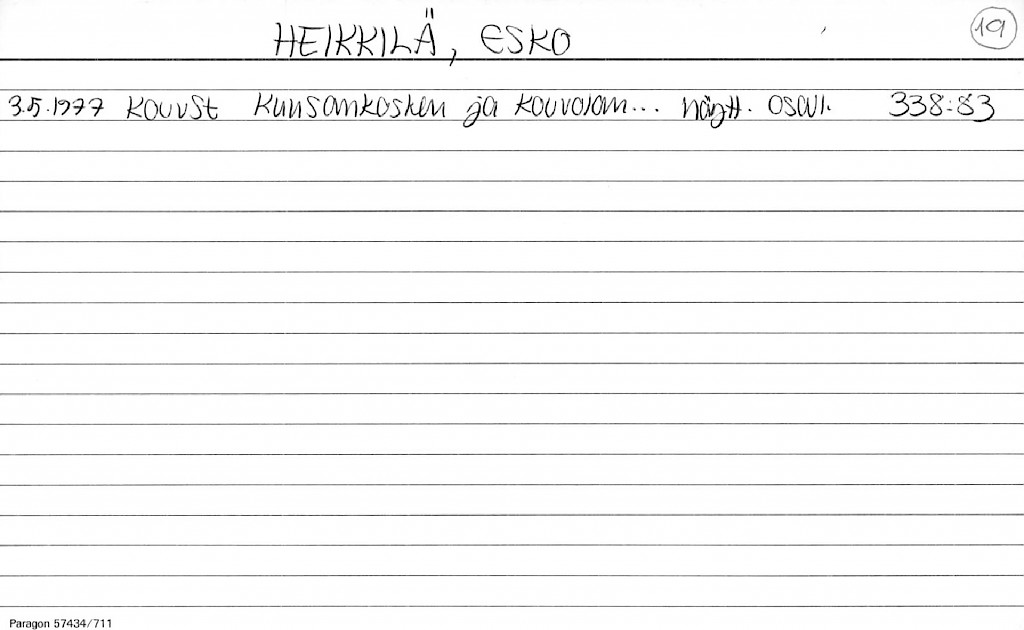 HEIKKILÄ, ESKO
19
3.5.1977 KouvSt Kuusankosken ja Kouvolan... näytt. osall. 338:83
Paragon 57434/711